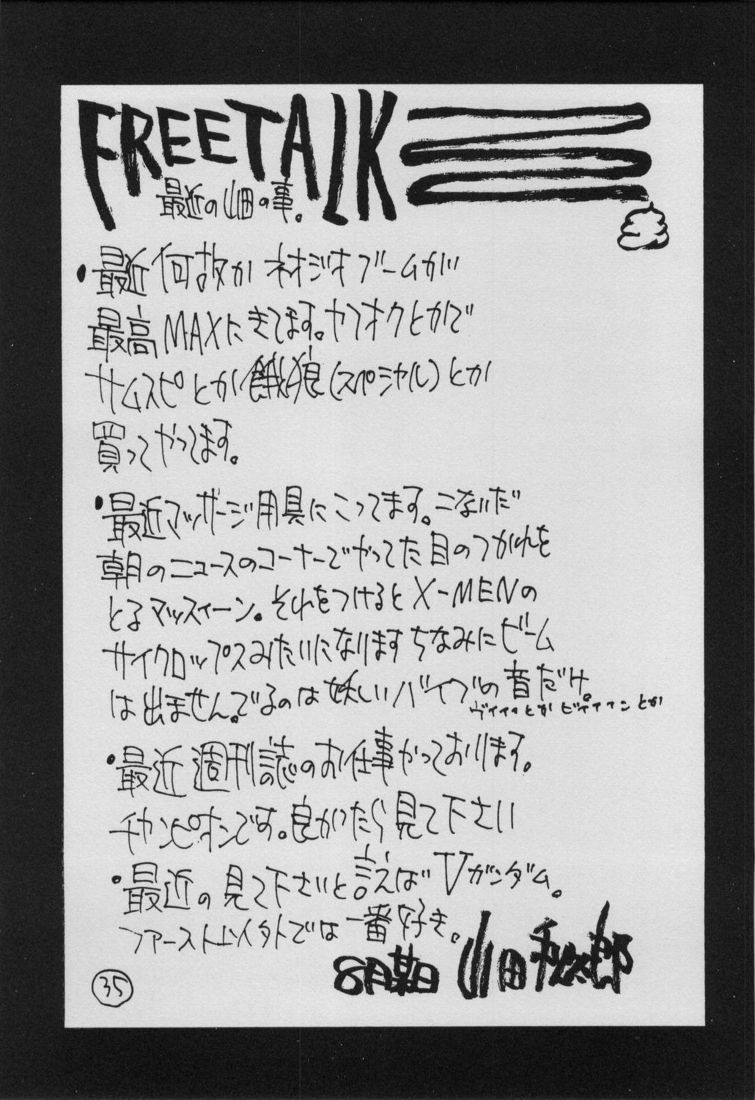 FREETALK
最近の山田の事。
・最近何故かネオジオブームが
最高MAXにきてます。ヤフオクとかで
サムスピとか餓狼(スペシャル)とか
買ってやってます。
・最近マッサージ用具にこってます。こないだ
朝のニュースのコーナーでやってた目のつかれを
とるマッスィーン。それをつけるとX-MENの
サイクロップスみたいになりますちなみにビーム
は出ません。でるのは妖しいバイブの音だけ。
ヴィィィとかビィィィンとか
・最近週刊誌のお仕事やっております。
チャンピオンです。良かったら見て下さい
・最近の見て下さいと言えばVガンダム。
ファースト以外では一番好き。
8月某日 山田秋太郎
35